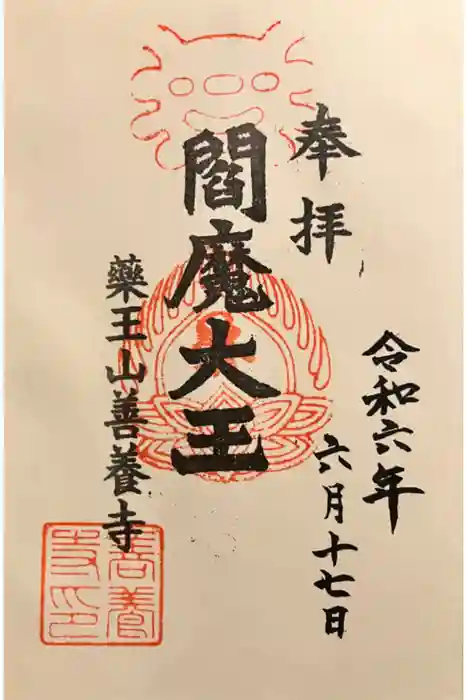 奉拝
令和六年
六月十七日
閻魔大王
藥王山善養寺
善養
寺印